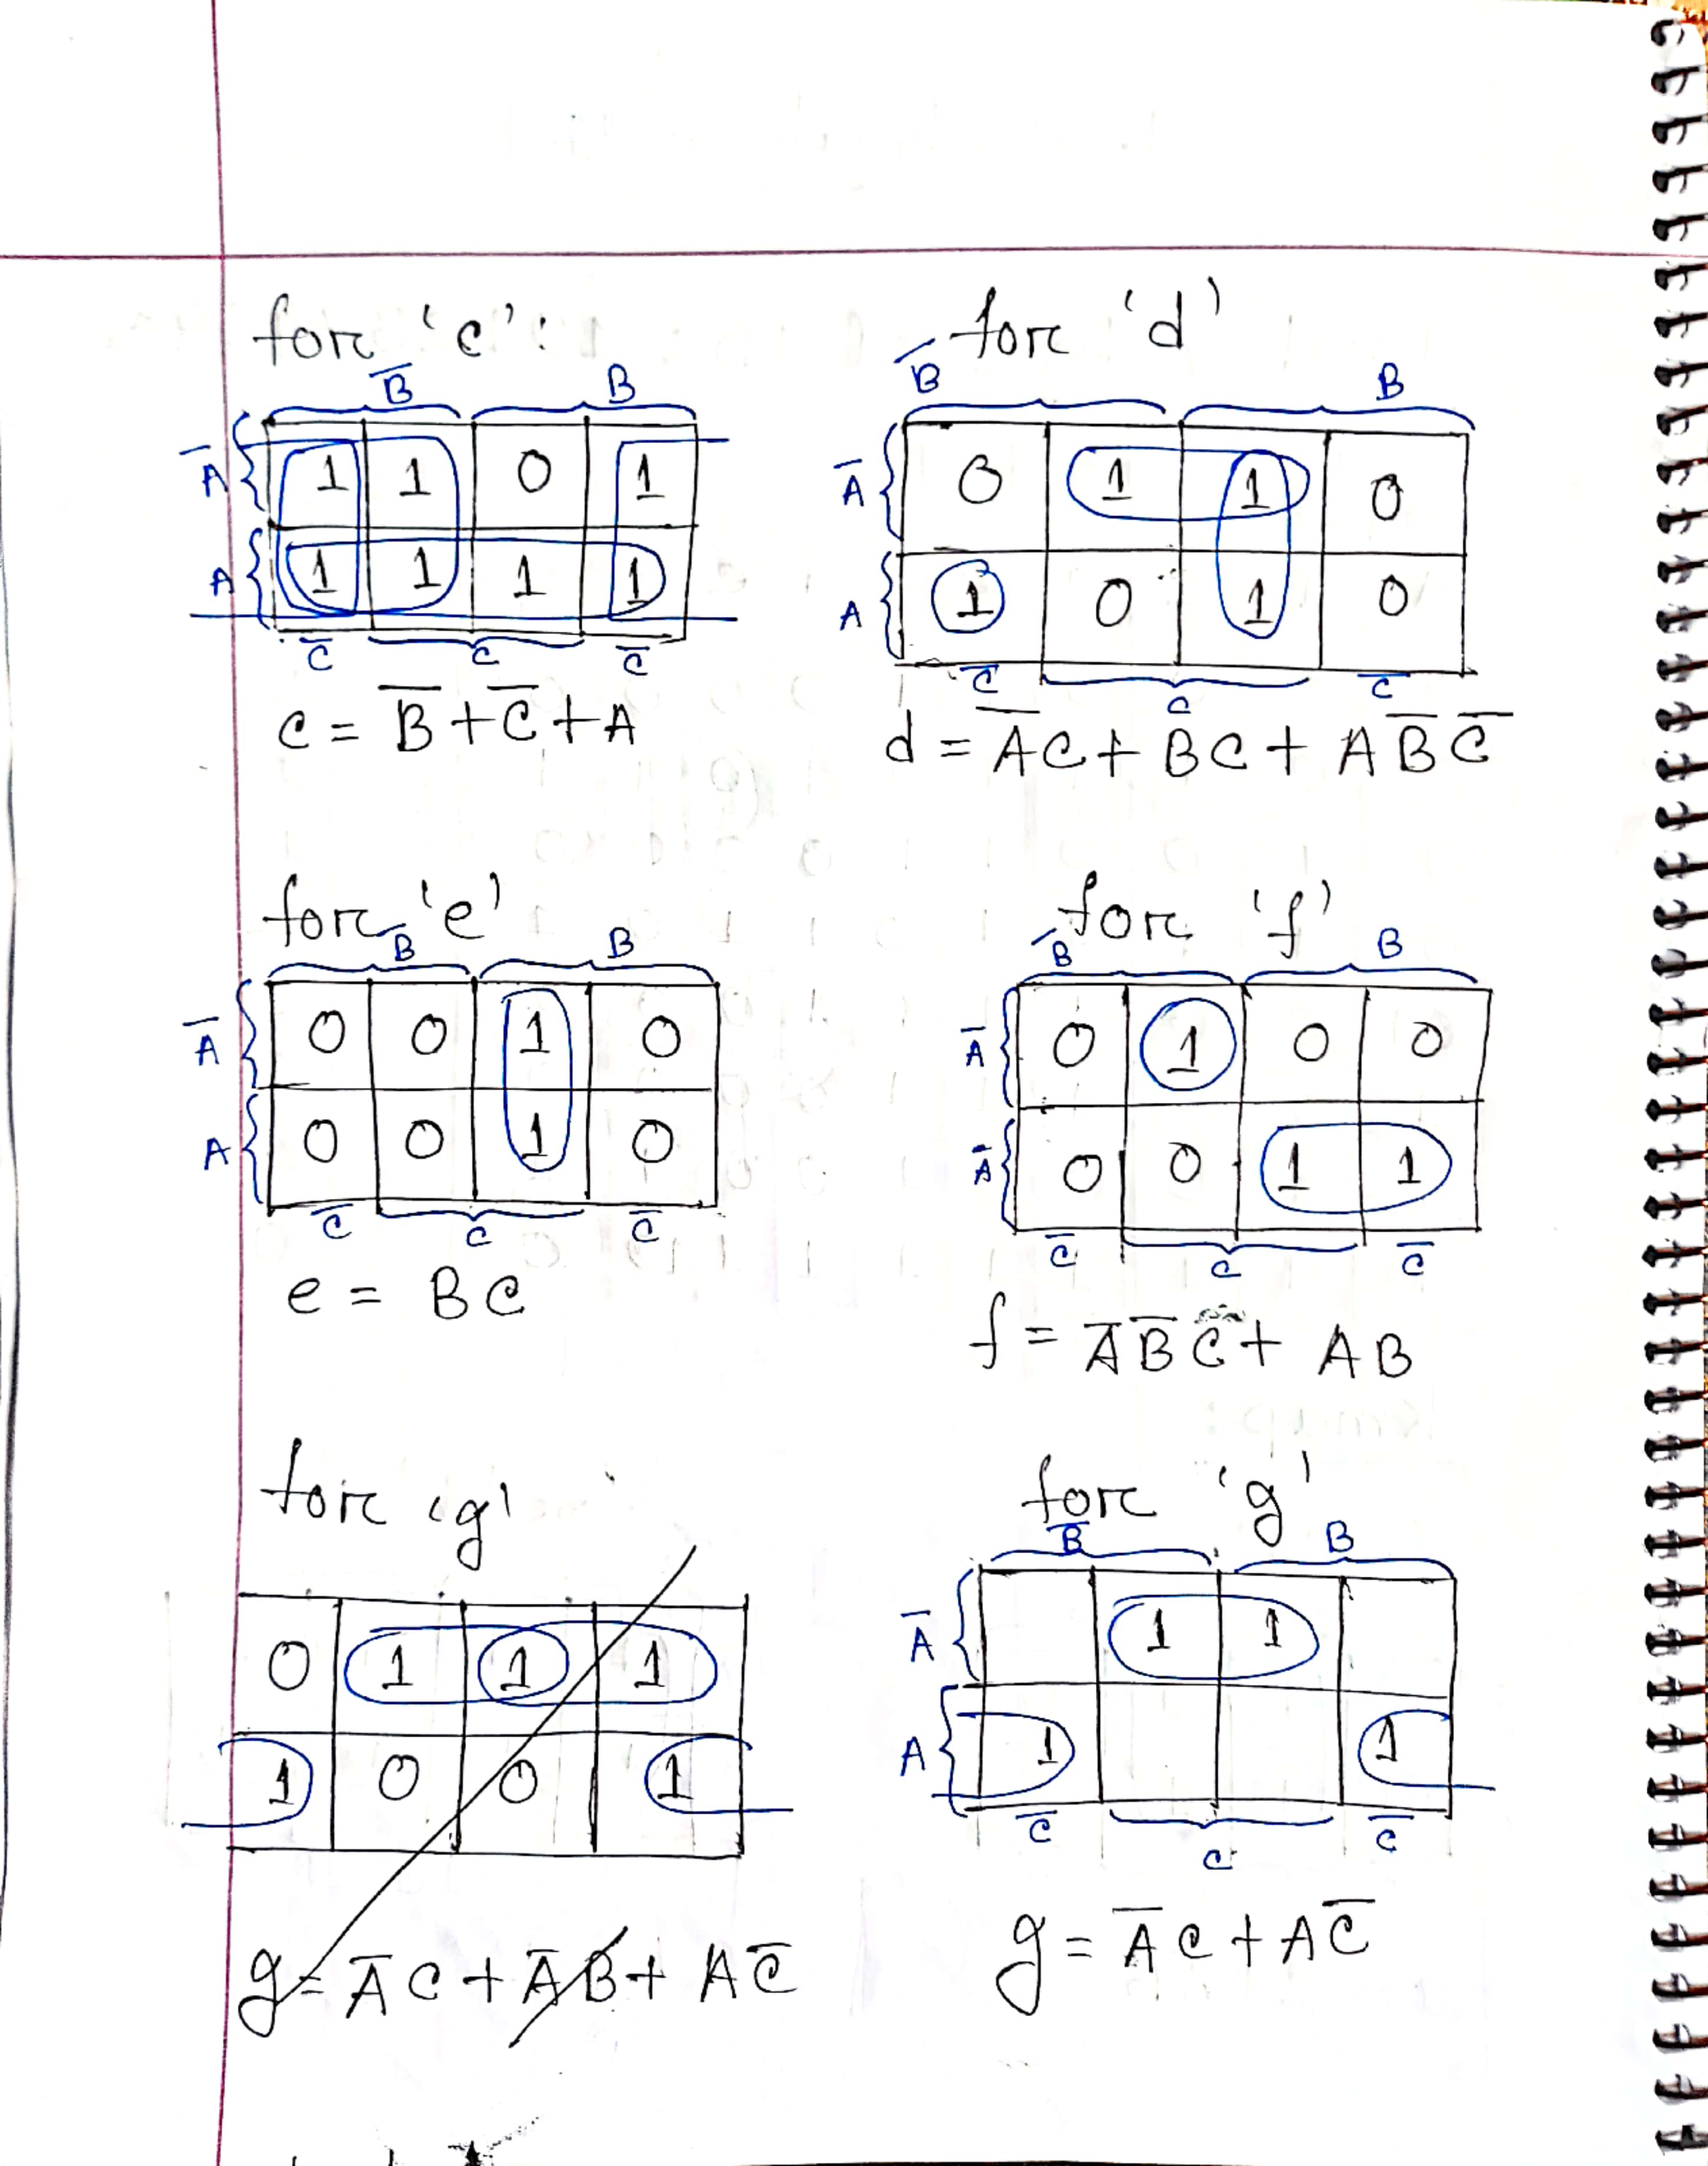 for 'c':
B̅ B
A̅ 1 1 0 1
A 1 1 1 1
C̅ C C̅
c = B̅ + C̅ + A
for 'd'
B̅ B
A̅ 0 1 1 0
A 1 0 1 0
C̅ C C̅
d = A̅C + BC + AB̅C̅
for 'e'
B̅ B
A̅ 0 0 1 0
A 0 0 1 0
C̅ C C̅
e = BC
for 'f'
B̅ B
A̅ 0 1 0 0
A̅ 0 0 1 1
C̅ C C̅
f = A̅B̅C + AB
for 'g'
0 1 1 1
1 0 0 1
g = A̅C + A̅B + AC̅
for 'g'
B̅ B
A̅ 1 1
A 1 1
C̅ C C̅
g = A̅C + AC̅